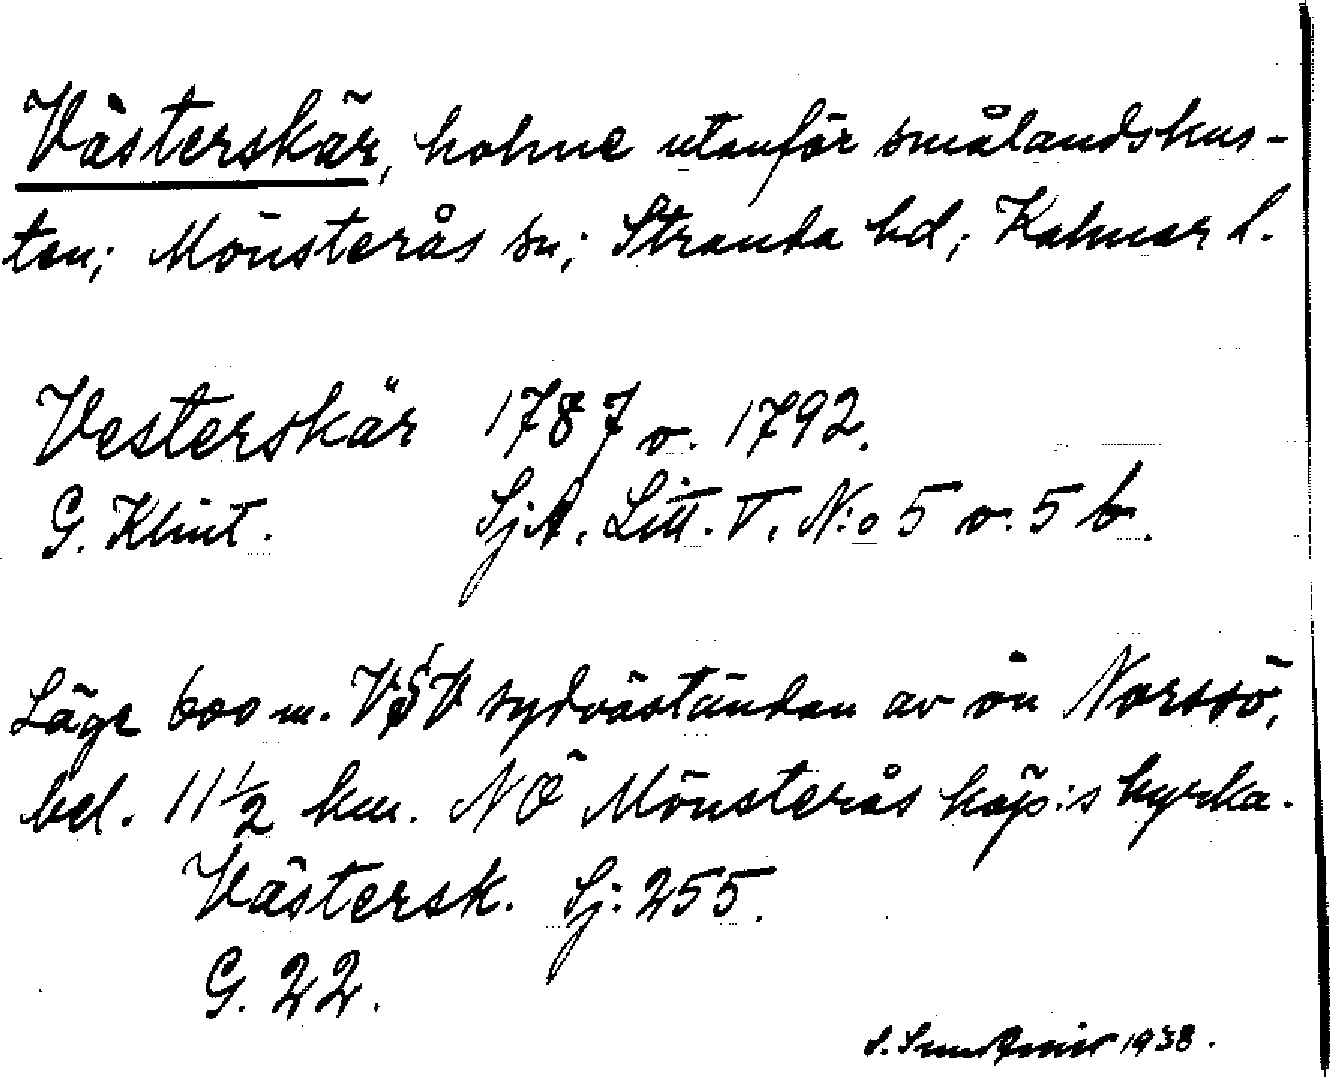 Västerskär, holme utanför smålandskus-
ten; Mönsterås sn; Stranda hd; Kalmar l.
Vesterskär 1787 o. 1792.
G. Klint. SjA. Litt. V. N:o 5 o. 5 b.
Läge 600 m. VSV sydväständan av ön Norrsö,
bel. 11 1/2 km. NÖ Mönsterås köp:s kyrka.
Västersk. Sj: 255.
G. 22.
1938.